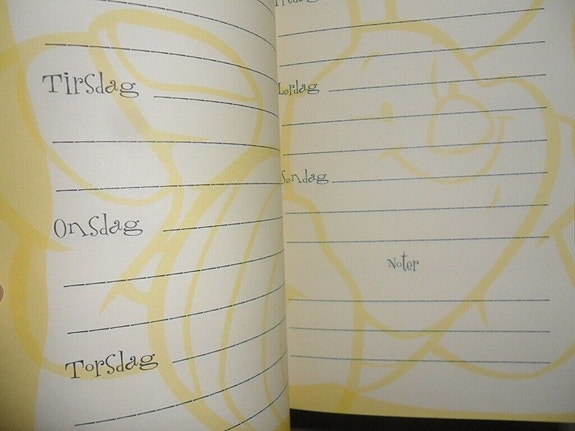 Tirsdag
Onsdag
Torsdag
Fredag
Lørdag
Søndag
Noter